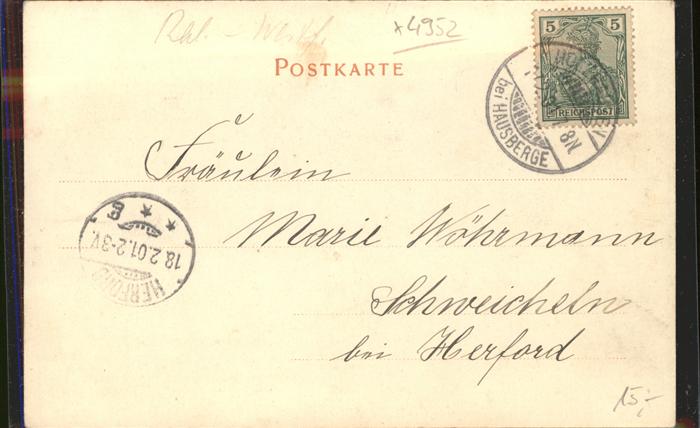 *4952
POSTKARTE
5 5
REICHSPOST
bei HAUSBERGE
8N
Fräulein
Marie Wöhrmann
Schweicheln
bei Herford
HERFORD
18.2.01.2-3V.
15,-